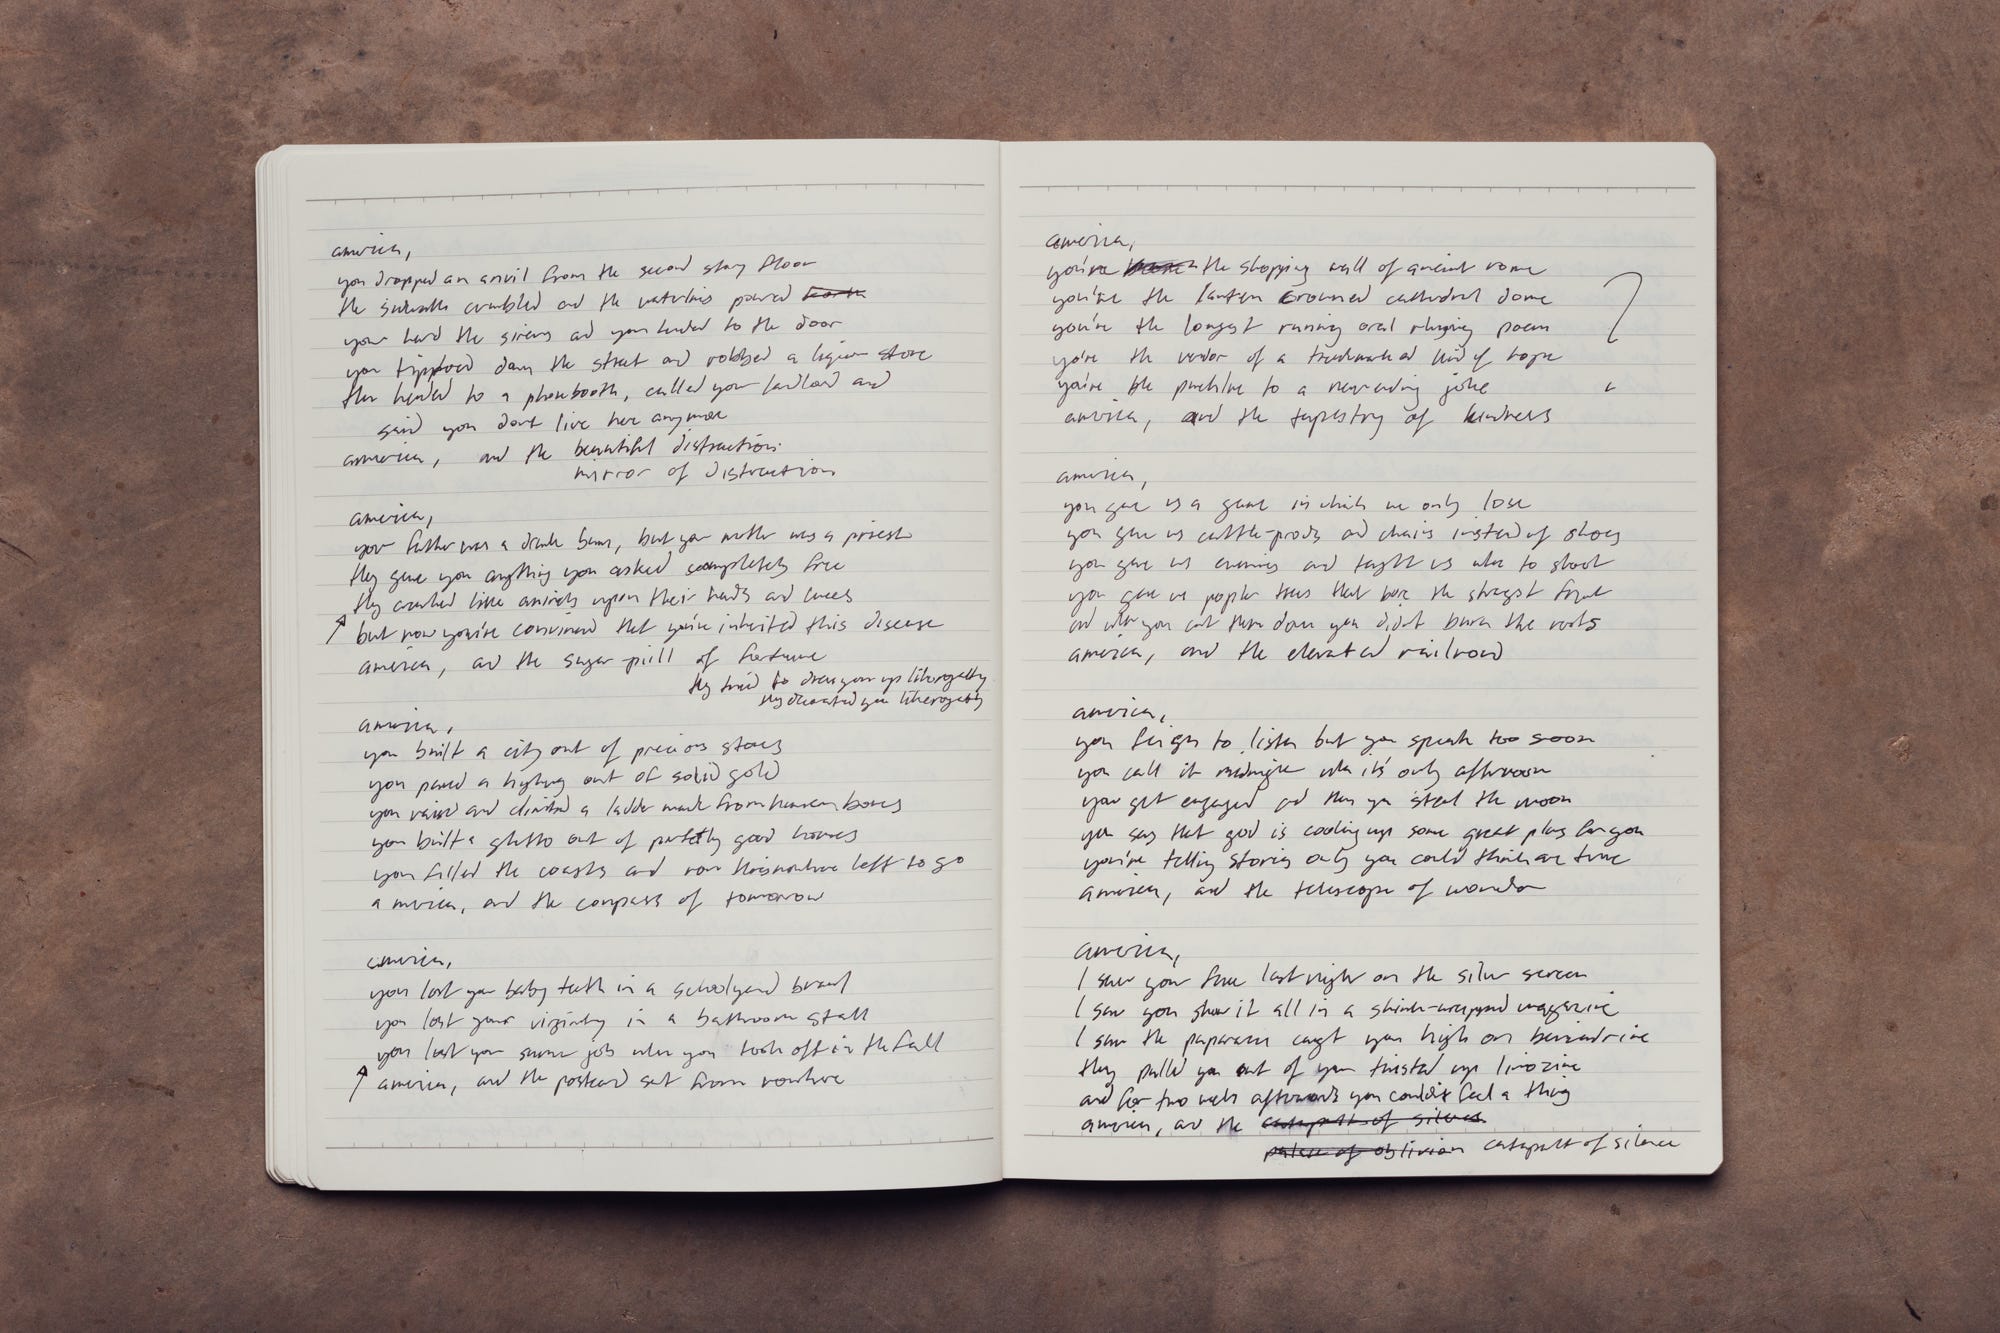 america,
you dropped an anvil from the second story floor
the sidewalk crumbled and the waterlines poured
you heard the sirens and you headed to the door
you tiptoed down the street and robbed a liquor store
then headed to a phonebooth, called your landlord and
said you dont live here anymore
america, and the beautiful distraction
mirror of distraction
america,
your father was a drunk bum, but your mother was a priest
they gave you anything you asked completely free
they crawled like animals upon their hands and knees
but now you're convinced that you've inherited this disease
america, and the sugar-pill of fortune
they tried to dress you up like royalty
they decorated you like royalty
america,
you built a city out of precious stones
you paved a highway out of solid gold
you raised and climbed a ladder made from human bones
you built a ghetto out of perfectly good homes
you filled the coasts and now theres nowhere left to go
america, and the compass of tomorrow
america,
you lost your baby teeth in a schoolyard brawl
you lost your virginity in a bathroom stall
you lost your summer job when you took off in the fall
america, and the postcard sent from nowhere
america,
you're the shopping mall of ancient rome
you're the lantern crowned cathedral dome
you're the longest running oral rhyming poem
you're the vendor of a trademarked kind of hope
you're the punchline to a neverending joke
america, and the tapestry of kindness
america,
you gave us a game in which we only lose
you gave us cattle-prods and chains instead of shoes
you gave us enemies and taught us who to shoot
you gave us poplar trees that bore the strangest fruit
and when you cut them down you didnt burn the roots
america, and the elevated railroad
america,
you feign to listen but you speak too soon
you call it midnight when it's only afternoon
you get engaged and then you steal the moon
you say that god is cooking up some great plans for you
you're telling stories only you could think are true
america, and the telescope of wonder
america,
I saw your face last night on the silver screen
I saw you show it all in a shrink-wrapped magazine
I saw the paparazzi caught you high on benzedrine
they pulled you out of your twisted up limozine
and for two weeks afterwards you couldn't feel a thing
america, and the catapult of silence
palace of oblivion catapult of silence